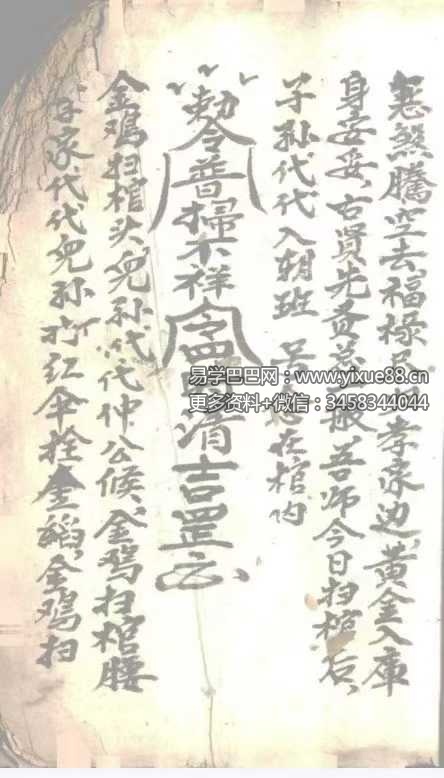 煞騰空去福禄 孝家边黄金入庫
身妥妥右賢先 吾师今日扫棺后
子孙代代入朝班 在棺内
勅令普掃不祥令四 清吉罡
金鸡扫棺头児孙代代 公候金鸡扫棺腰
家代代児孙 红伞拴金 金鸡扫
易学巴巴网：www.yixue88.cn
更多资料+微信：3458344044